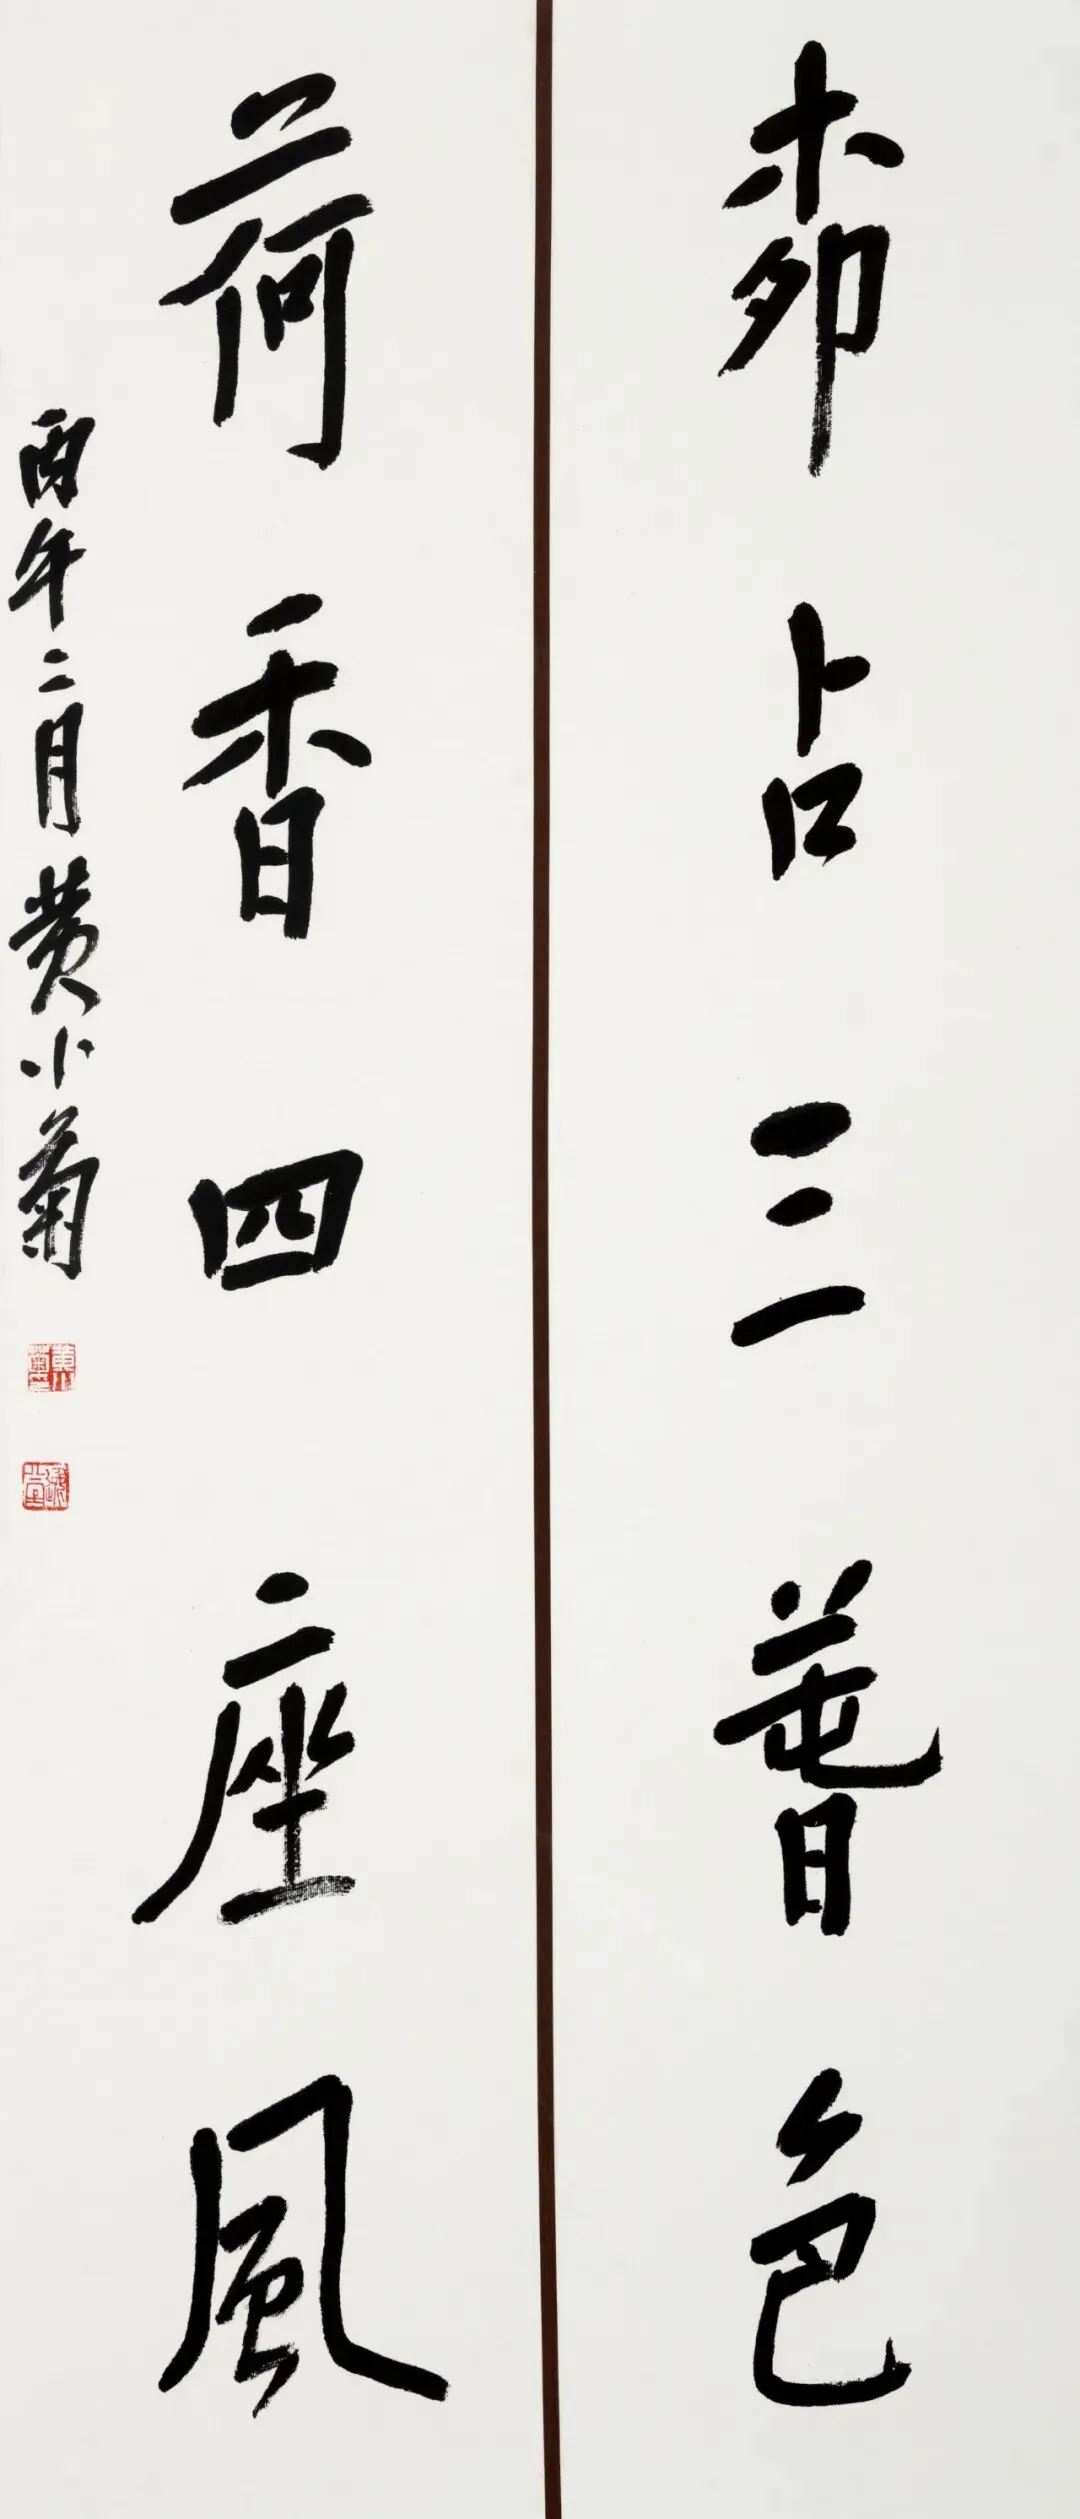 桺占三萅色
荷香四座風
丙午二月黄小菊